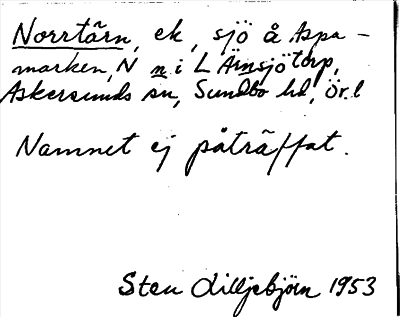 Norrtärn, ek, sjö å Aspa-
marken, N n i L Åmsjötorp,
Askersunds sn, Sundbo hd, Ör. l
Namnet ej påträffat.
Sten Lilljebjörn 1953